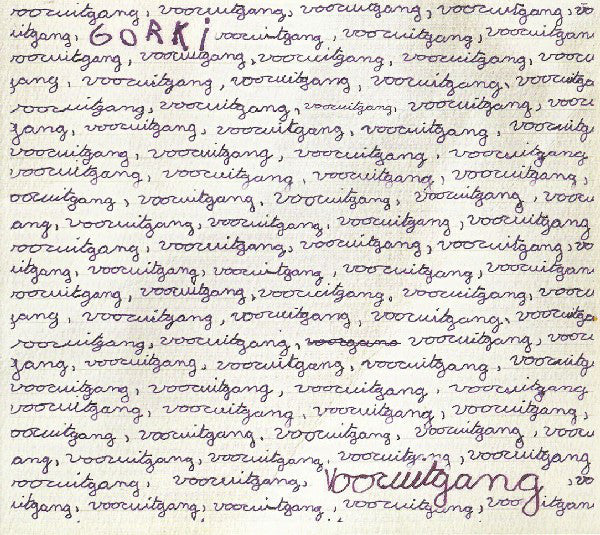 vooruitgang, vooruitgang, vooruitgang, vooruitgang, vo
uitgang, GORKI vooruitgang, vooruitgang, vooruitgan
vooruitgang, vooruitgang, vooruitgang, vooruitgang, vooru
gang, vooruitgang, vooruitgang, vooruitgang, vooruitga
vooruitgang, vooruitgang, vooruitgang, vooruitgang, vooru
gang, vooruitgang, vooruitgang, vooruitgang, vooruitg
vooruitgang, vooruitgang, vooruitgang, vooruitgang
vooruitgang, vooruitgang, vooruitgang, vooruitgang,
ooruitgang, vooruitgang, vooruitgang, vooruitgang, vooru
ang, vooruitgang, vooruitgang, vooruitgang, vooruitgang
vooruitgang, vooruitgang, vooruitgang, vooruitgang, vo
uitgang, vooruitgang, vooruitgang, vooruitgang, vooruitgan
vooruitgang, vooruitgang, vooruitgang, vooruitgang, vooru
gang, vooruitgang, vooruitgang, vooruitgang, vooruitga
vooruitgang, vooruitgang, vooruitgang, vooruitgang, vooru
gang, vooruitgang, vooruitgang, vooruitgang, vooruitg
vooruitgang, vooruitgang, vooruitgang, vooruitgang
vooruitgang, vooruitgang, vooruitgang, vooruitgang,
ooruitgang, vooruitgang, vooruitgang, vooruitgang, vooru
ang, vooruitgang, vooruitgang, vooruitgang, vooruitgang
vooruitgang, vooruitgang, Vooruitgang, vo
uitgang, vooruitgang, vooruitgang, vooruitgang, vooruitgan